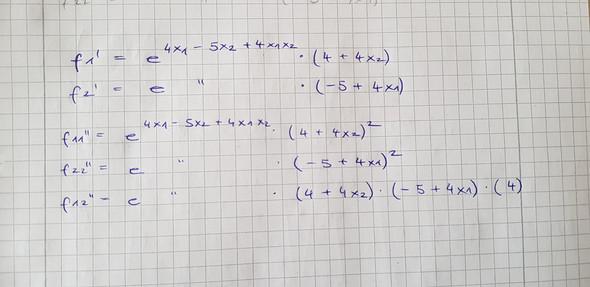 f1' = e^4x1 - 5x2 + 4x1x2 · (4 + 4x2)
f2' = e " · (-5 + 4x1)
f11" = e^4x1 - 5x2 + 4x1x2 · (4 + 4x2)^2
f22" = e " · (-5 + 4x1)^2
f12" = e " · (4 + 4x2) · (-5 + 4x1) · (4)